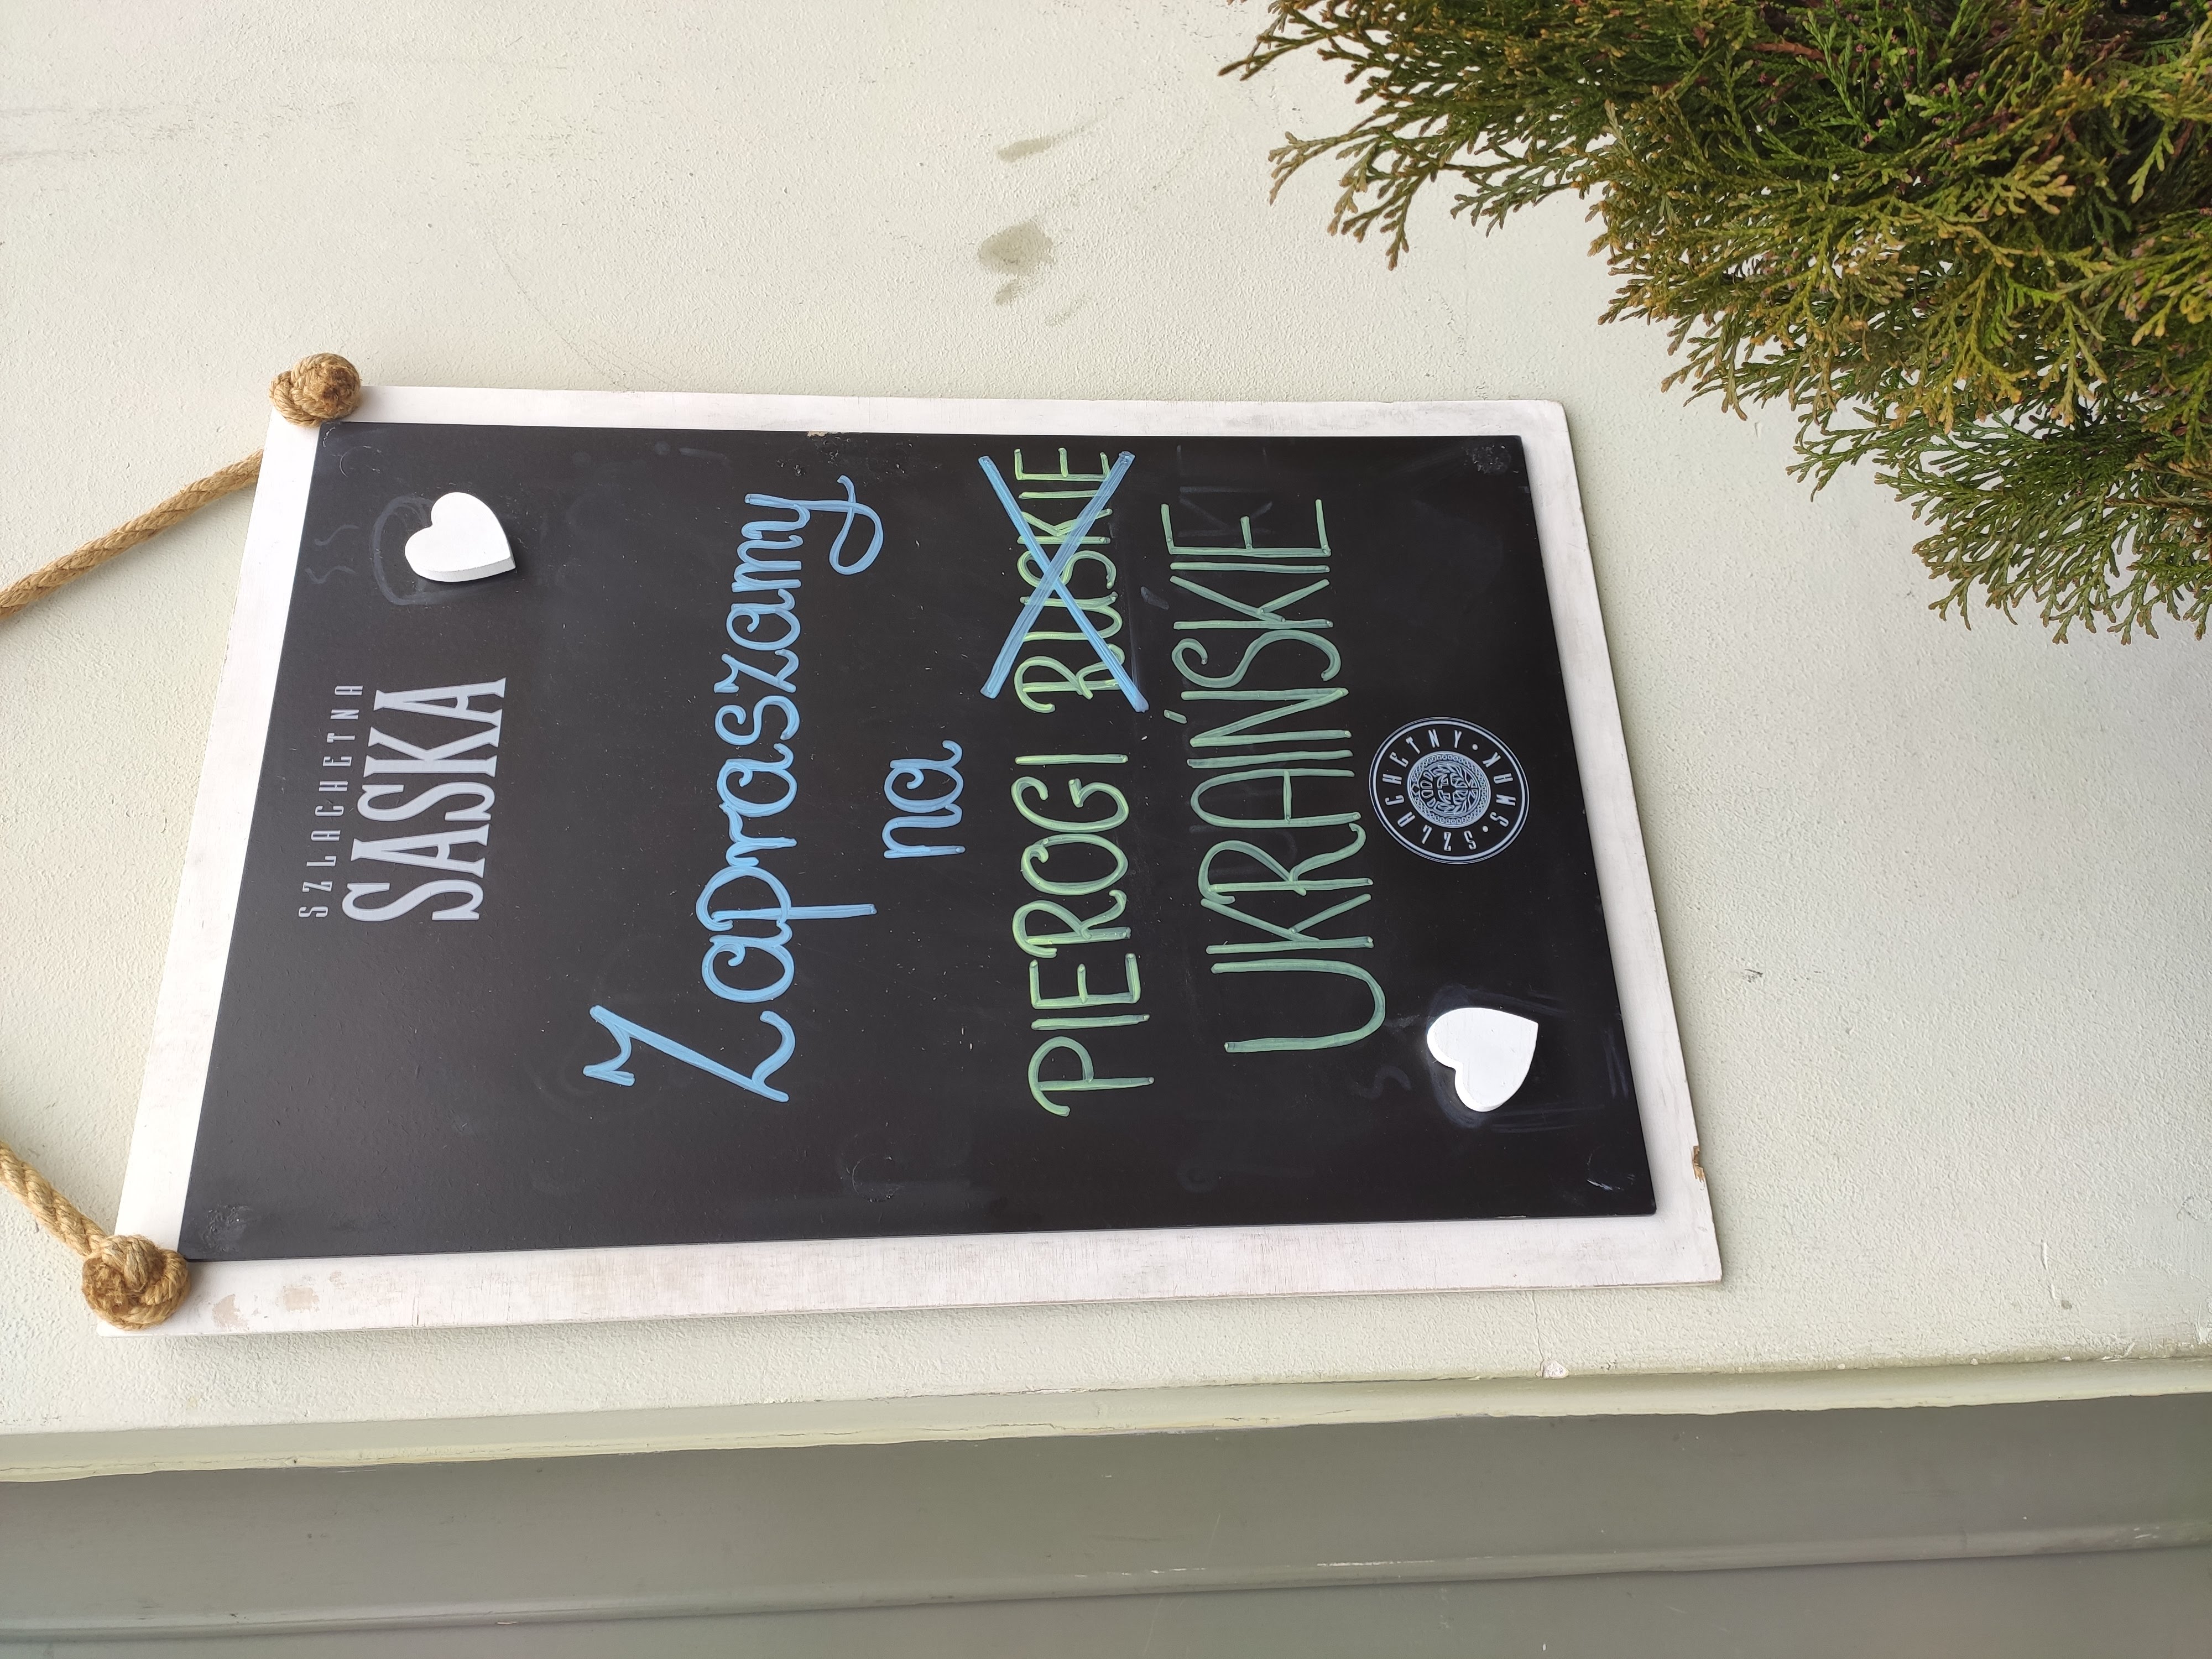 SZLACHETNA
SASKA
Zapraszamy
na
PIEROGI RUSKIE
UKRAIŃSKIE
SZLACHETNY • SMAK •